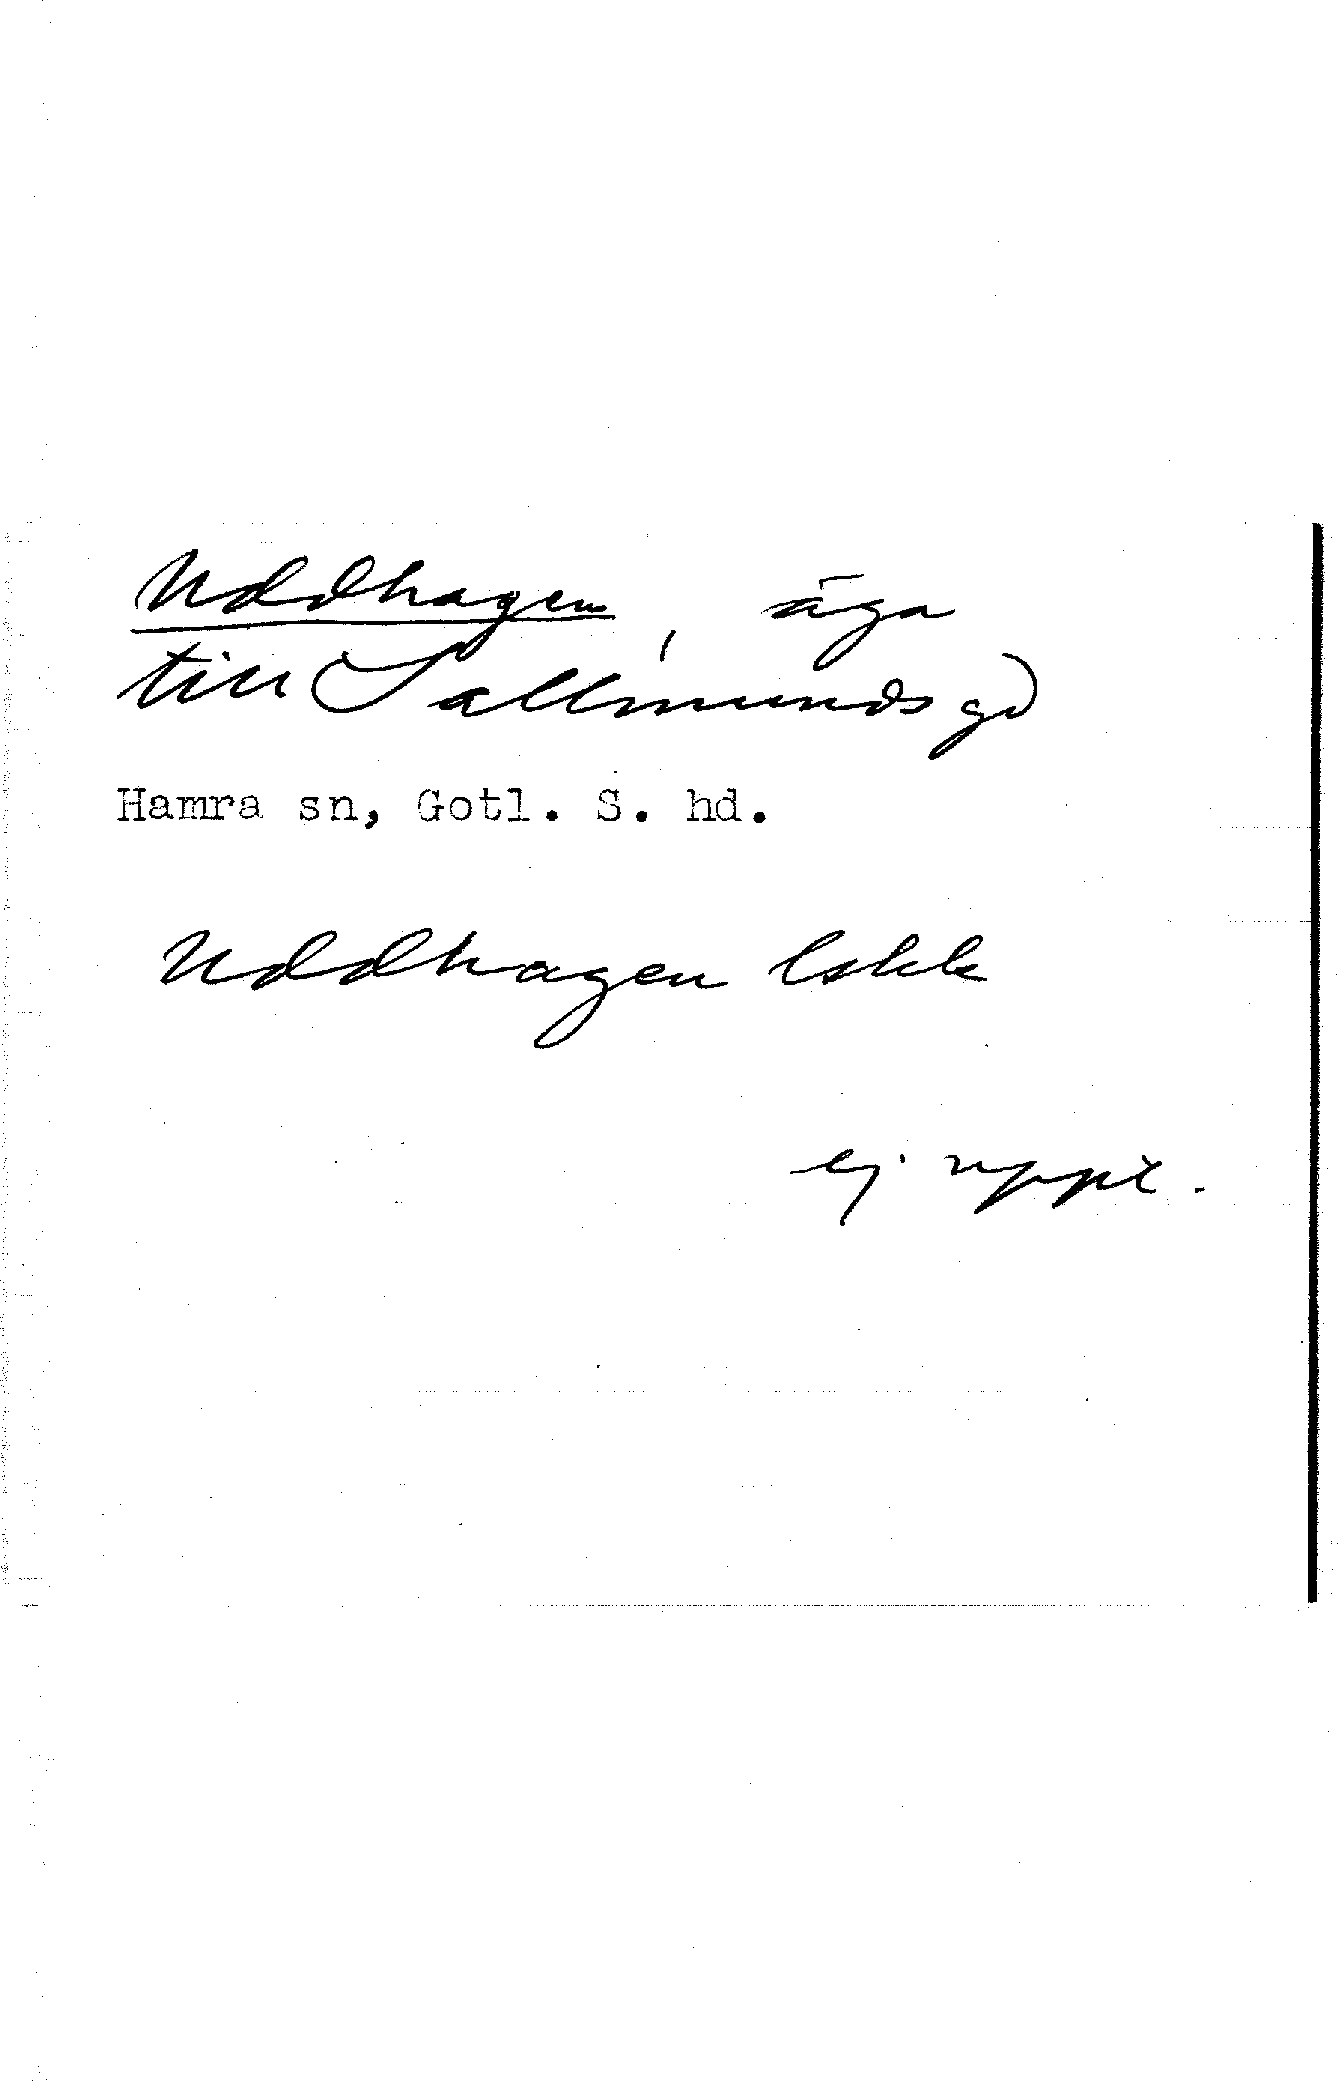 Uddhagen, äga
till Sallmunds gd
Hamra sn, Gotl. S. hd.
Uddhagen lskk
ej uppt.